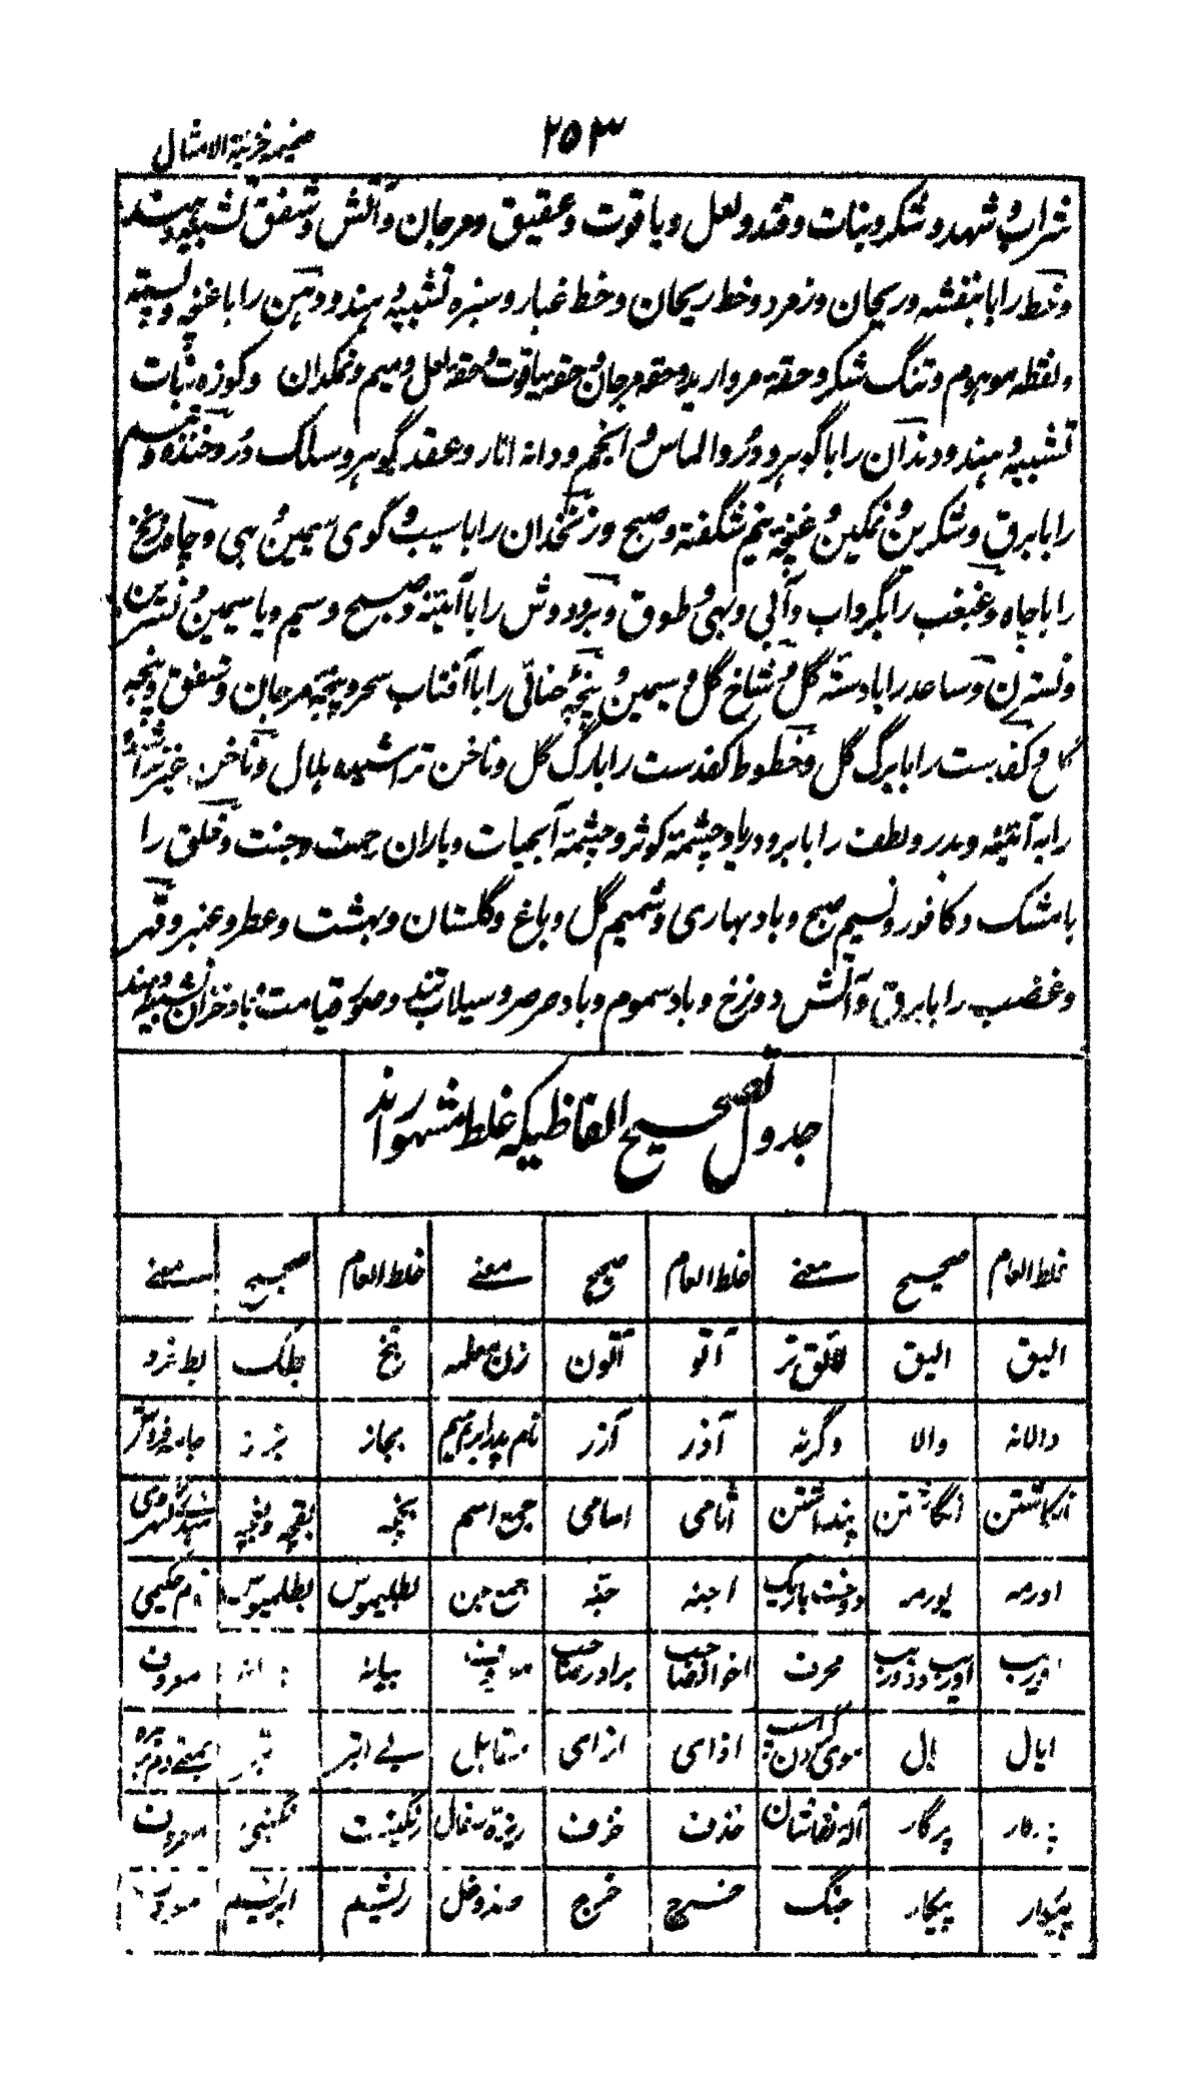 ۲۵۳
ضمیمہ خزینۃ الامثال
شراب و شہد و شکر و نبات و قند و لعل و یاقوت و عقیق و مرجان و آتش و شفق تشبیہ دہند
و خط را با بنفشہ و ریحان و زمرد و خط ریحان و خط غبار و سبزہ تشبیہ دہند و دہن را با غنچہ و پستہ
و نقطہ موہوم و تنگ شکر و حقہ مروارید و حقہ مرجان و حقہ یاقوت و حقہ لعل و میم و نمکدان و کوزہ نبات
تشبیہ دہند و دندان را با گوہر و در و الماس و انجم و دانہ انار و عقد گوہر و سلک در و خندہ و تبسم
را با برق و شکرین و نمکین و غنچہ نیم شگفتہ و صبح و زنخدان را با سیب و گوی سیمین و بہی و چاہ زنخ
را با چاہ و غبغب را بگرداب و آبی و بہی و طوق و بر و دوش را با آئینہ و صبح و سیم و یاسمین و نسرین
و نسترن و ساعد را با دستہ گل و شاخ گل و سیمین و پنجہ حنائی را با آفتاب سحر و پنجہ مرجان و شفق و پنجہ
و کفدست را با برگ گل و خطوط کفدست را با رگ گل و ناخن تراشیدہ ہلال و ناخن غیر تراشیدہ
را بہ آئینہ و بدر و لطف را با ابر و دریا و چشمہ کوثر و چشمہ آبحیات و باران رحمت و جنت و خلق را
با مشک و کافور و نسیم صبح و باد بہاری و شمیم گل و باغ و گلستان و بہشت و عطر و عنبر و قہر
و غضب را با برق و آتش دوزخ و باد سموم و باد صرصر و سیلاب تند و صور قیامت و باد خزان تشبیہ دہند
جدول تصحیح الفاظیکہ غلط مشہور اند
غلط العام صحیح معنے غلط العام صحیح معنے غلط العام صحیح معنے
الیق الیق لائق تر آتو آتون زن معلمہ بطک بط خرد
والانہ والا وگرنہ آذر آزر نام پدر ابراہیم بجاز بزاز جامہ فروش
انگاشتن پنداشتن اثامی اسامی جمع اسم بغچہ بقچہ
اورمہ یورمہ دوخت باریک اجنہ جمع جن بطلیموس بطلمیوس نام حکیمی
اوریب محرف اخوالصاحب برادر صاحب بیانہ معروف
ایال یال موی گردن اذای ازای مقابل بے
پرکار پرگار آلہ نقاشان خذف خزف ریزہ سفال معروف
پیکار جنگ خرچ خرج ریشم ابریشم معروف